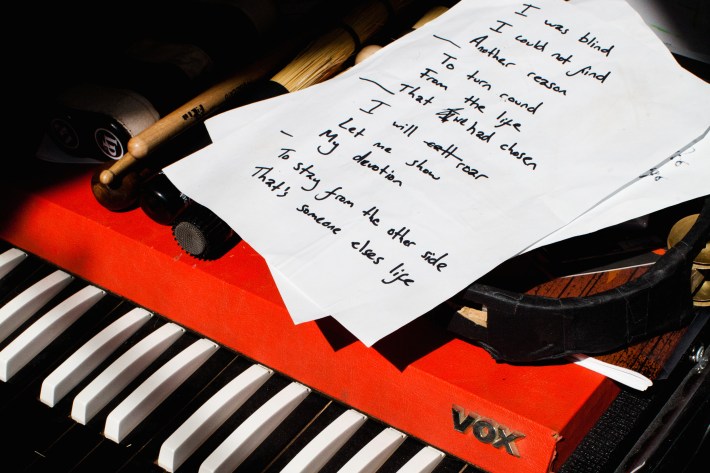 I was blind
I could not find
– Another reason
To turn round
From the life
– That I've had chosen
I will roar
Let me show
My devotion
– To stay from the other side
That's someone elses life
VOX